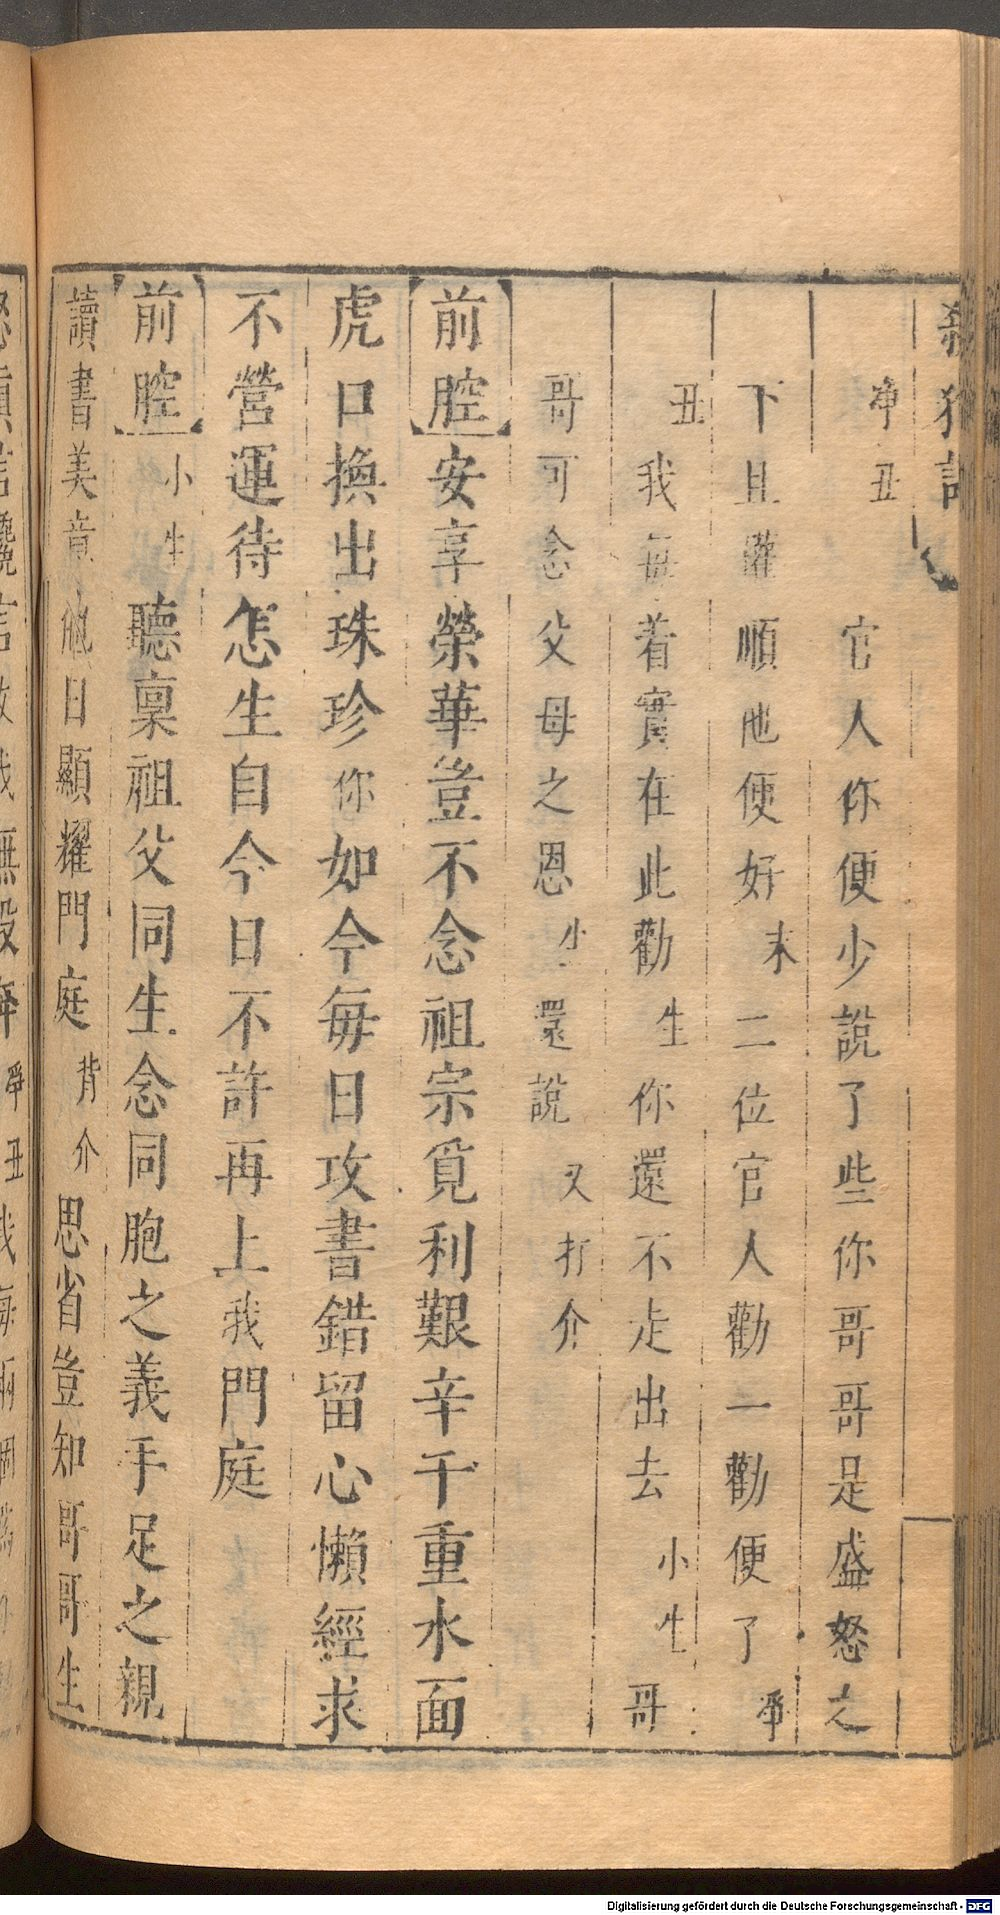 殺狗記
淨丑 官人你便少說了些你哥哥是盛怒之
下且權順他便好末二位官人勸一勸便了淨
丑我每着實在此勸生你還不走出去小生哥
哥可念父母之恩小還說又打介
【前腔】安享榮華豈不念祖宗覓利艱辛千重水面
虎口換出珠珍你如今每日攻書錯留心懶經求
不營運待怎生自今日不許再上我門庭
【前腔】小生聽稟祖父同生念同胞之義手足之親
讀書美意他日顯耀門庭背介思省豈知哥哥生
Digitalisierung gefördert durch die Deutsche Forschungsgemeinschaft - DFG